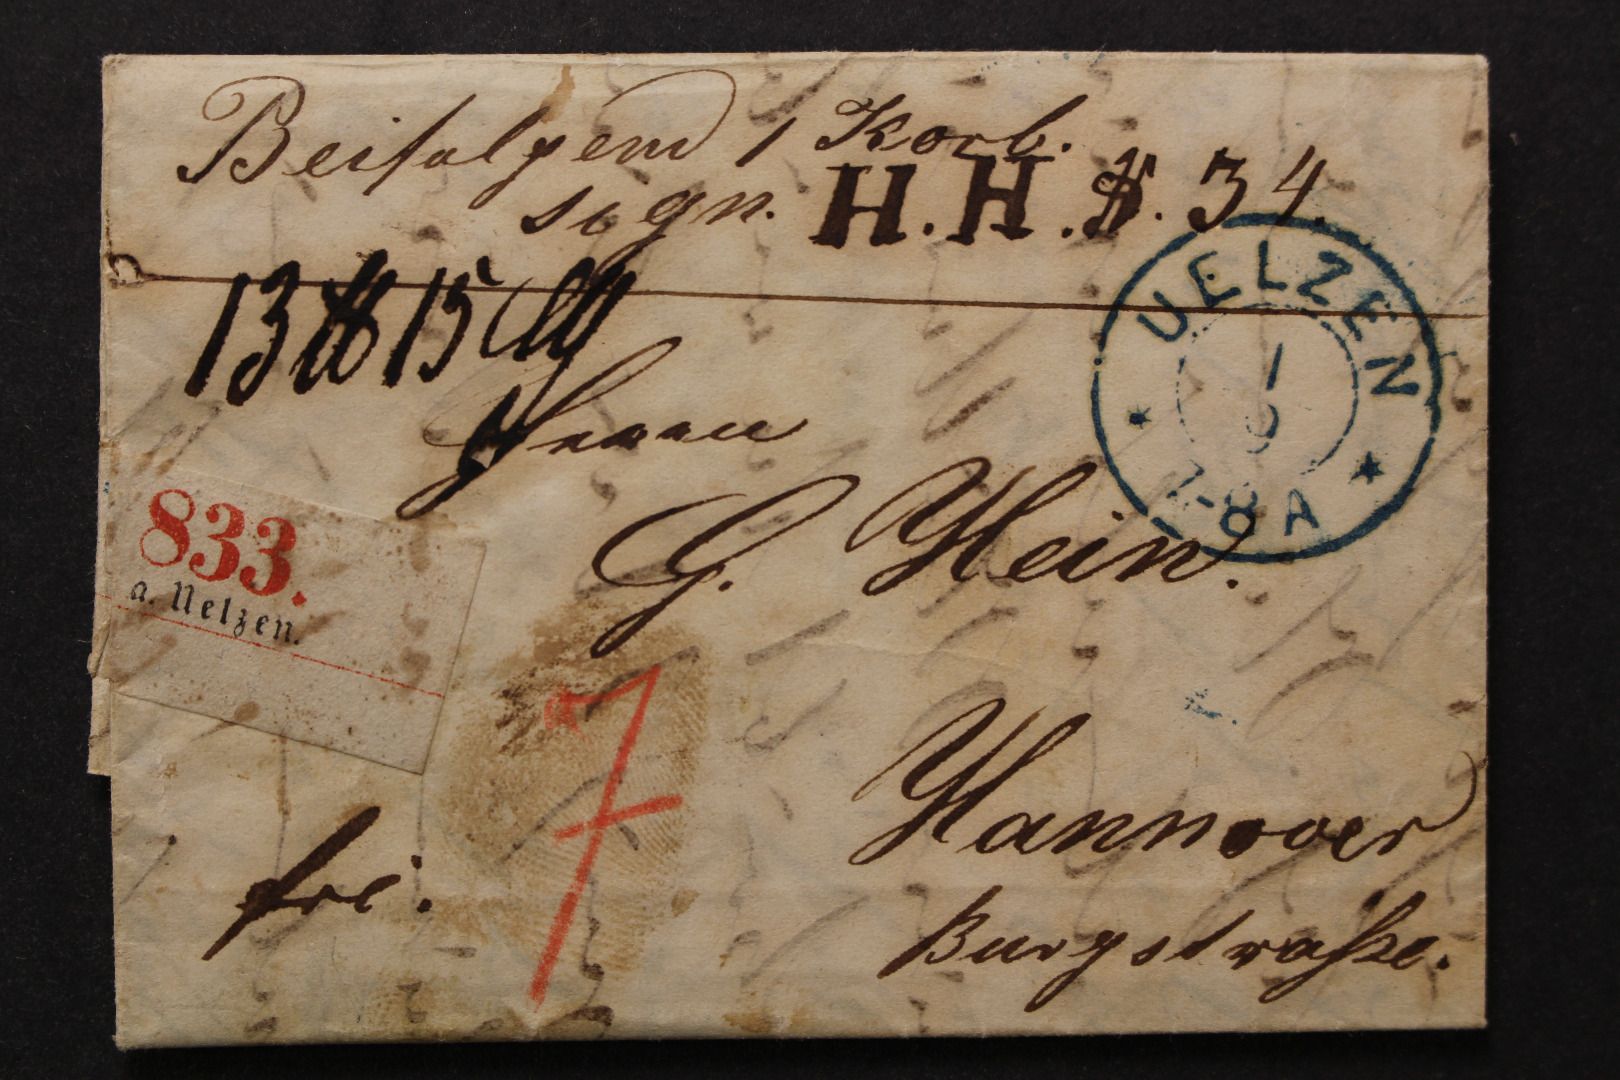 Beifolgend 1 Korb.
sign. H. H. #. 34.
13 ℔ 15
UELZEN
1
9
7-8 A
Herrn
G. Hein.
833.
a. Uelzen.
7
Hannover
frei.
Burgstraße.